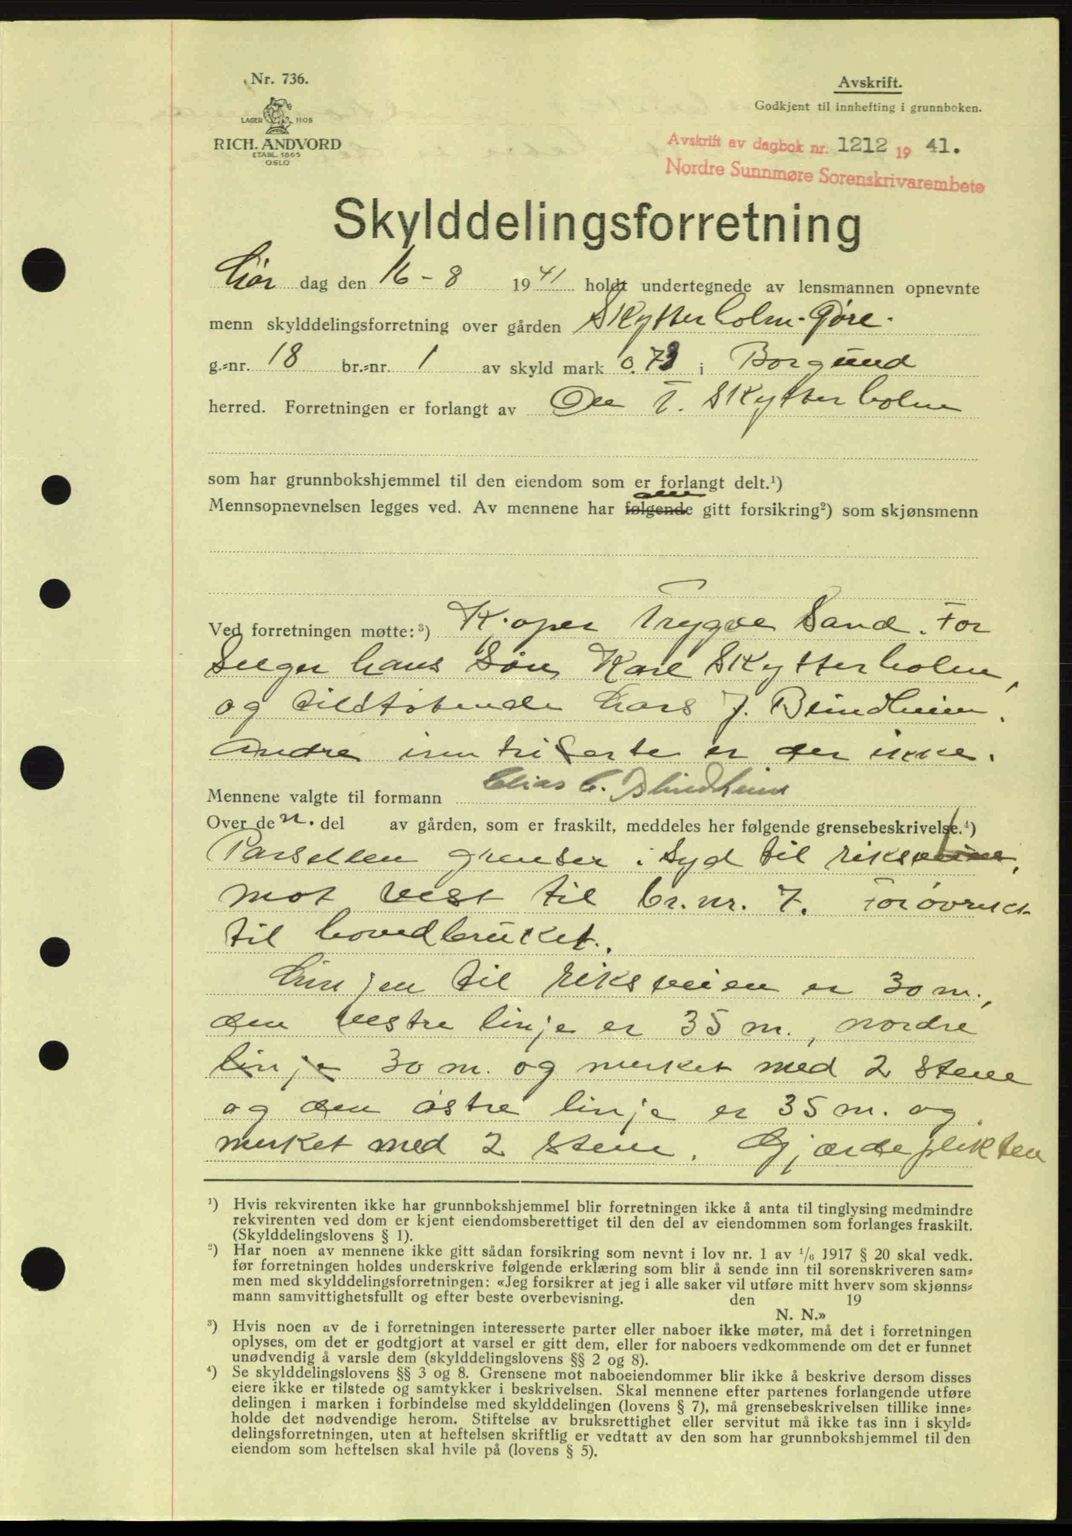 Nr. 736.
LAGER HOS
RICH. ANDVORD
ETABL. 1865
OSLO
Avskrift.
Godkjent til innhefting i grunnboken.
Avskrift av dagbok nr. 1212 19 41.
Nordre Sunnmøre Sorenskrivarembete
Skylddelingsforretning
Lør dag den 16 - 8 19 41 holdt undertegnede av lensmannen opnevnte
menn skylddelingsforretning over gården Skytterholm-Gøre.
g.=nr. 18 br.=nr. 1 av skyld mark 0.73 i Borgund
herred. Forretningen er forlangt av Ole T. Skytterholm
som har grunnbokshjemmel til den eiendom som er forlangt delt.¹)
alle
Mennsopnevnelsen legges ved. Av mennene har følgende gitt forsikring²) som skjønsmenn
Ved forretningen møtte:³) Kjøper Trygve Sand. For
Selger hans Søn Karl Skytterholm,
og tilstøtende Lars J. Blindheim.
Andre inntriserte er der ikke.
Mennene valgte til formann Elias C. Blindheim
Over den. del av gården, som er fraskilt, meddeles her følgende grensebeskrivelse.⁴)
Parsellen grenser i Syd til riksveien,
mot vest til br.nr. 7. Forøvrickt
til hovedbruket.
Linjen til riksveien er 30 m.,
den vestre linje er 35 m., nordre
linje 30 m. og merket med 2 stene
og den østre linje er 35 m. og
merket med 2 stene. Gjærdeplikten
¹) Hvis rekvirenten ikke har grunnbokshjemmel blir forretningen ikke å anta til tinglysing medmindre
rekvirenten ved dom er kjent eiendomsberettiget til den del av eiendommen som forlanges fraskilt.
(Skylddelingslovens § 1).
²) Har noen av mennene ikke gitt sådan forsikring som nevnt i lov nr. 1 av ¹/₆ 1917 § 20 skal vedk.
før forretningen holdes underskrive følgende erklæring som blir å sende inn til sorenskriveren sam=
men med skylddelingsforretningen: «Jeg forsikrer at jeg i alle saker vil utføre mitt hverv som skjønns=
mann samvittighetsfullt og efter beste overbevisning. den 19
N. N.»
³) Hvis noen av de i forretningen interesserte parter eller naboer ikke møter, må det i forretningen
oplyses, om det er godtgjort at varsel er gitt dem, eller for naboers vedkommende om det er funnet
unødvendig å varsle dem (skylddelingslovens §§ 2 og 8).
⁴) Se skylddelingslovens §§ 3 og 8. Grensene mot naboeiendommer blir ikke å beskrive dersom disses
eiere ikke er tilstede og samtykker i beskrivelsen. Skal mennene efter partenes forlangende utføre
delingen i marken i forbindelse med skylddelingen (lovens § 7), må grensebeskrivelsen tillike inne=
holde det nødvendige herom. Stiftelse av bruksrettighet eller servitut må ikke tas inn i skyld=
delingsforretningen, uten at heftelsen skriftlig er vedtatt av den som har grunnbokshjemmel til den
eiendom som heftelsen skal hvile på (lovens § 5).